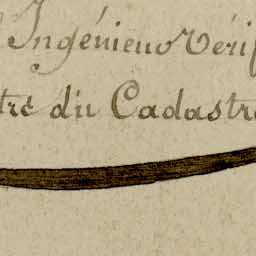 Ingénieur Vérif
tre du Cadastre